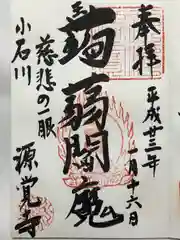 奉拝
平成廿三年
一月十六日
蒟蒻閻魔
慈悲の一眼
小石川
源覚寺